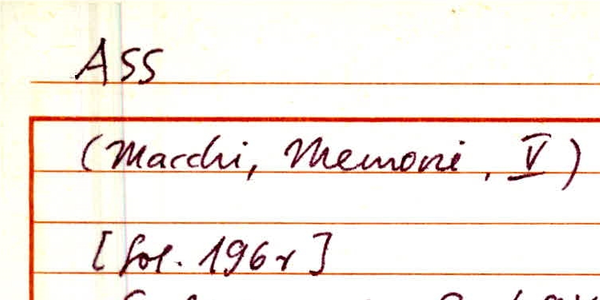 ASS
(Macchi, Memorie, V)
[fol. 196r]